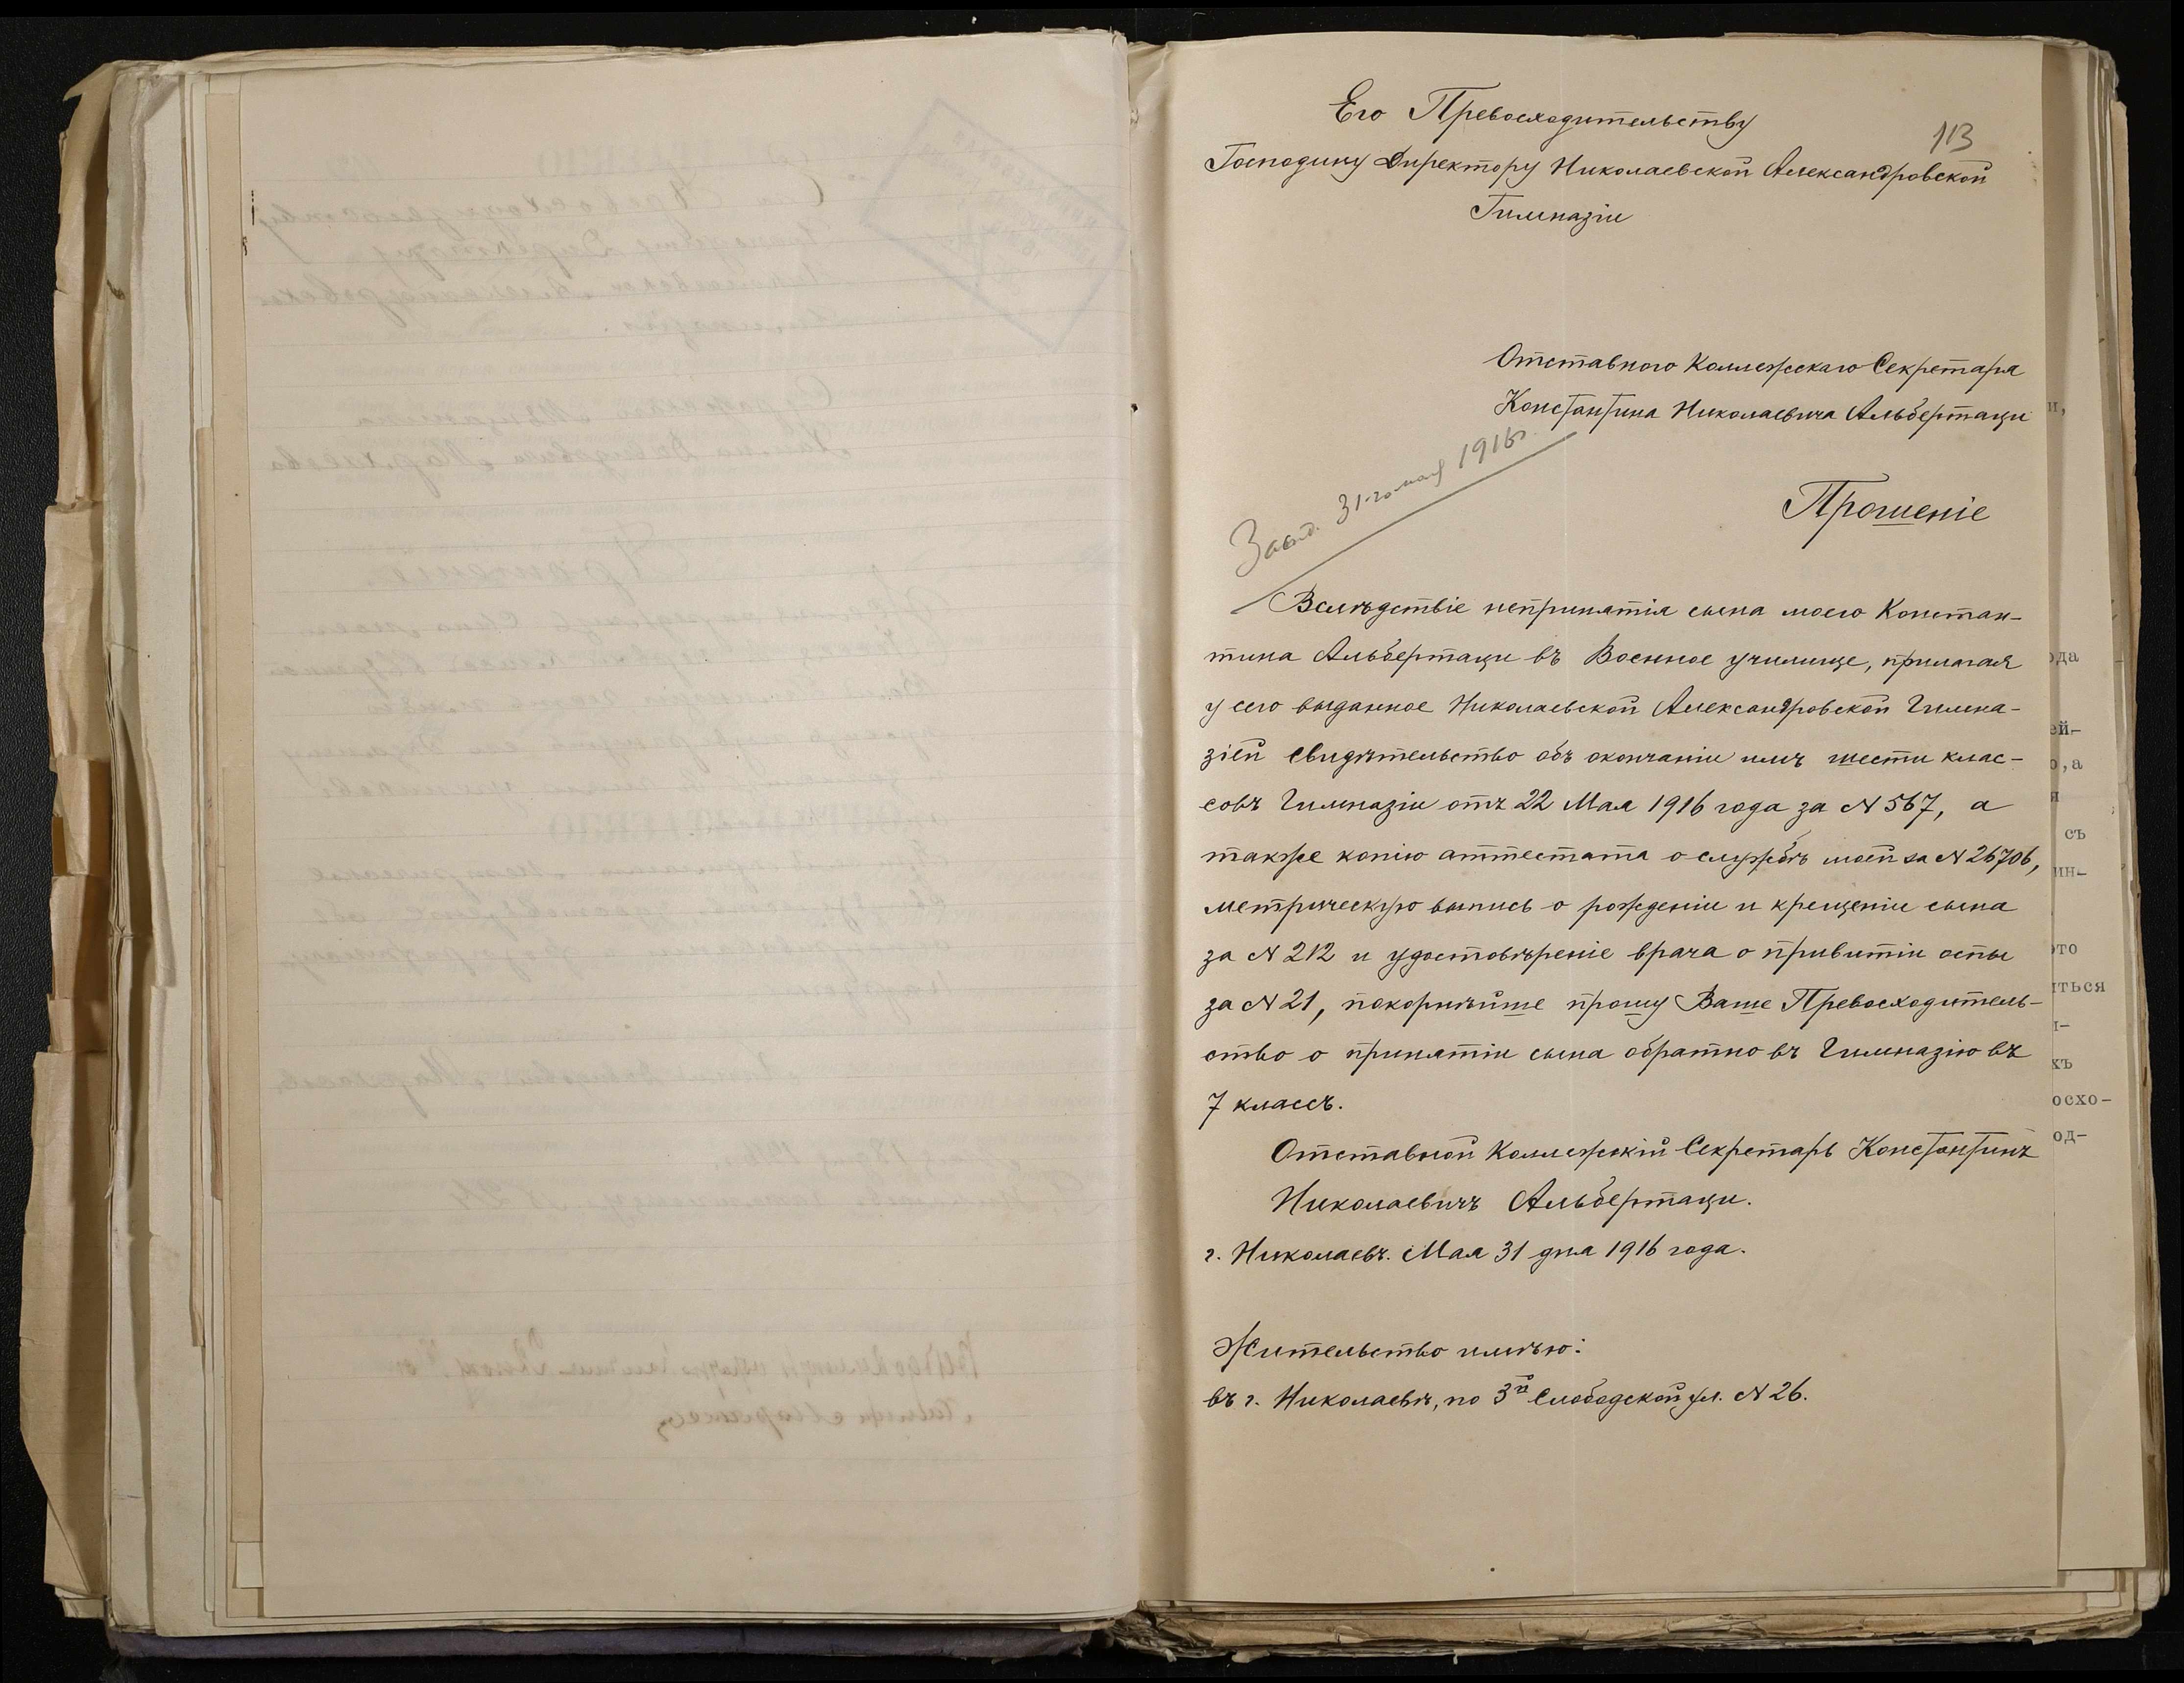 113
Его Превосходительству
Господину Директору Николаевской Александровской
Гимназіи
Отставного Коллежскаго Секретаря
Константина Николаевича Альбертаци
31-го мая 1916 г.
Прошеніе
Вслѣдствіе непринятія сына моего Констан-
тина Альбертаци въ Военное училище, прилагая
у сего выданное Николаевской Александровской Гимна-
зіей свидѣтельство объ окончаніи имъ шести клас-
совъ Гимназіи отъ 22 Мая 1916 года за № 567, а
также копію аттестата о службѣ моей за № 26706,
метрическую выпись о рожденіи и крещеніи сына
за № 212 и удостовѣреніе врача о привитіи оспы
за № 21, покорнѣйше прошу Ваше Превосходитель-
ство о принятіи сына обратно въ Гимназію въ
7 классъ.
Отставной Коллежскій Секретарь Константинъ
Николаевичъ Альбертаци.
г. Николаевъ. Мая 31 дня 1916 года.
Жительство имѣю:
въ г. Николаевѣ, по 3й Слободской ул. № 26.
и,
ода
ей-
о,а
я
съ
ин-
это
иться
хъ
осхо-
од-